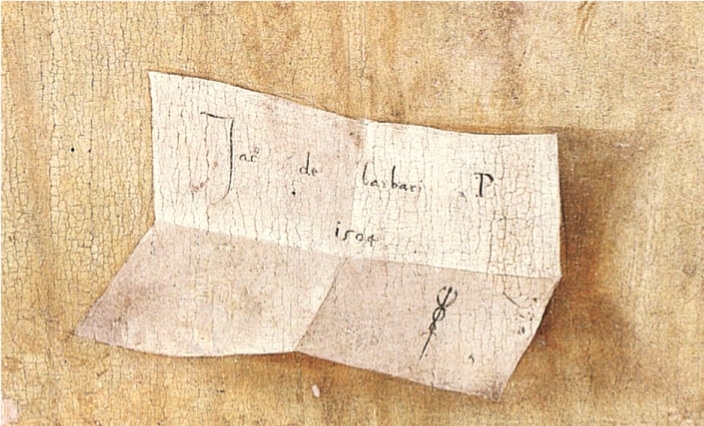 Jac° de barbari P
1504